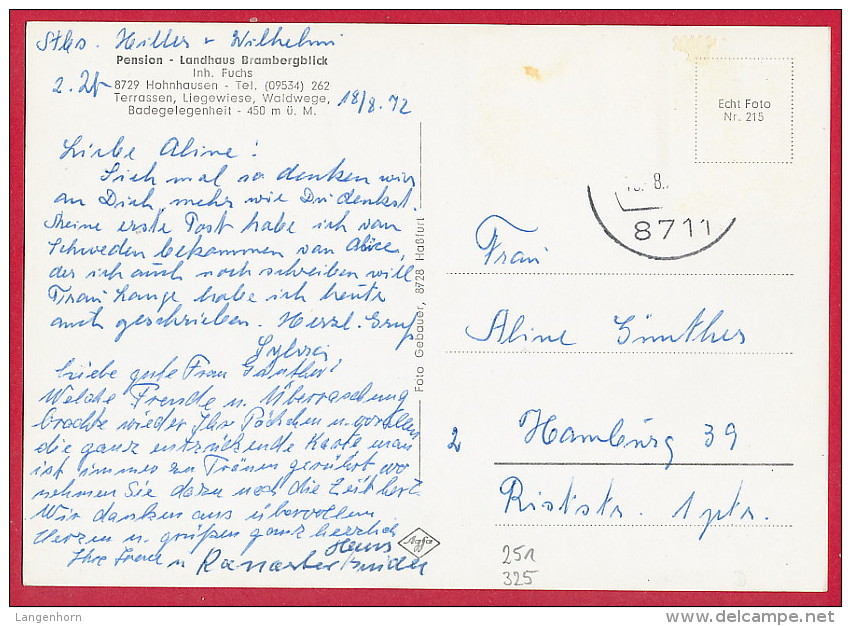 Hiller + Wilhelmi
Pension - Landhaus Brambergblick
Inh. Fuchs
8729 Hohnhausen - Tel. (09534) 262
Terrassen, Liegewiese, Waldwege,
Badegelegenheit - 450 m ü. M.
18/8.72
Liebe Aline!
Sieh mal so denken wir
an Dich, mehr wie Du denkst.
Meine erste Post habe ich von
Schweden bekommen von Alice,
der ich auch noch schreiben will
Frau Lange habe ich heute
auch geschrieben. Herzl. Gruß
Liebe gute Frau Günther!
Welche Freude u. Überraschung
brachte wieder Ihr Päckchen u. vor allem
die ganz entzückende Karte man
ist immer zu Tränen gerührt wo
nehmen Sie dazu noch die Zeit her?
Wir danken aus übervollem
Herzen u. grüßen ganz herzlich
Ihre u
Foto Gebauer, 8728 Haßfurt
Agfa
Echt Foto
Nr. 215
8.
8711
Frau
Aline Günther
2 Hamburg 39
Riststr. 1 ptr.
251
325
Langenhorn
www.delcampe.net